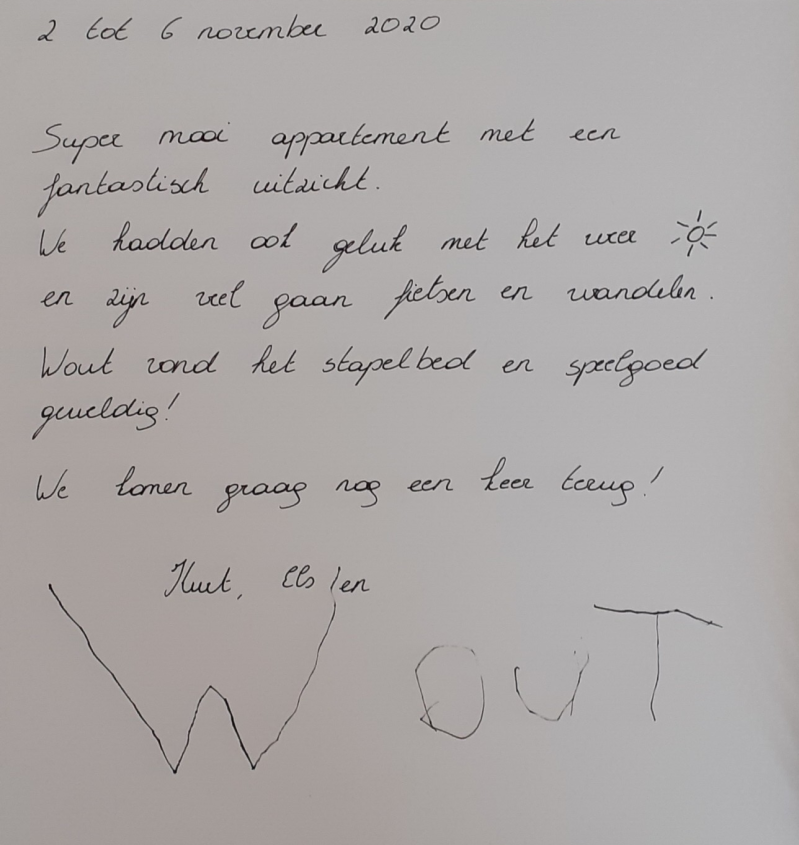 2 tot 6 november 2020
Super mooi appartement met een
fantastisch uitzicht.
We hadden ook geluk met het weer
en zijn veel gaan fietsen en wandelen.
Wout vond het stapelbed en speelgoed
geweldig!
We komen graag nog een keer terug!
Kurt, Els en
WOUT